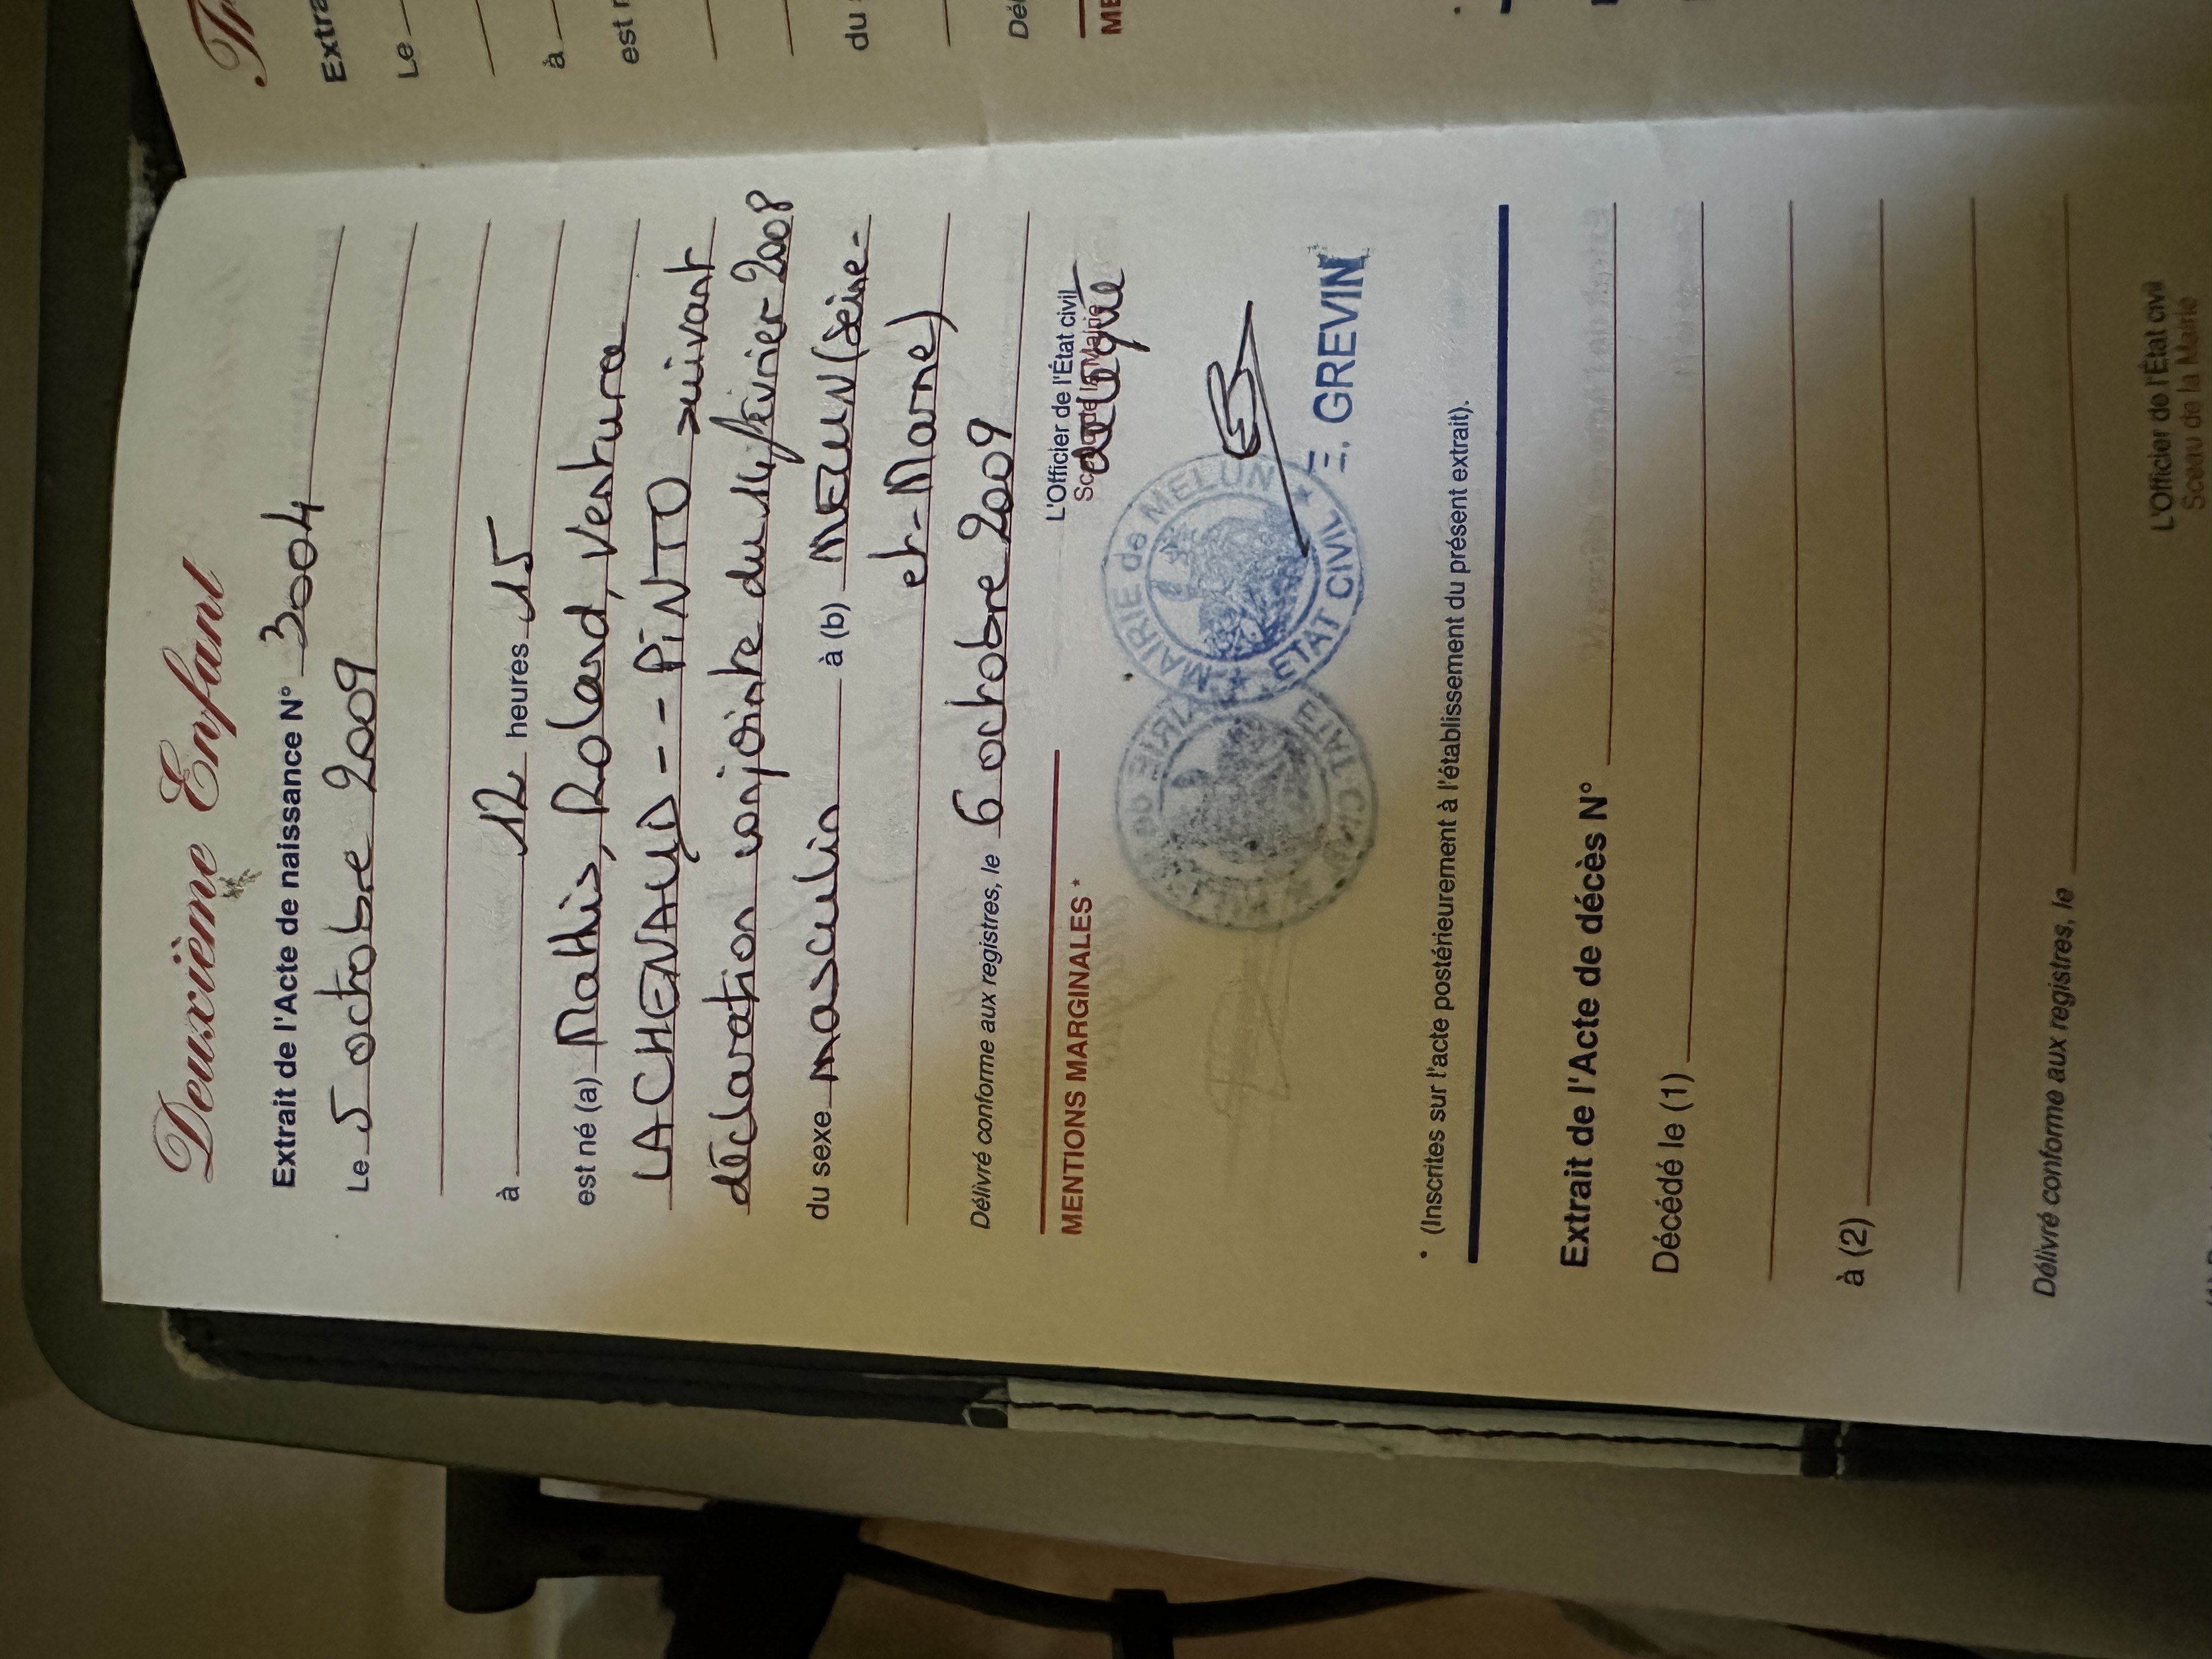 Deuxième Enfant
Extrait de l'Acte de naissance N° 3004
Le 5 octobre 2009
à 12 heures 15
est né (a) Mathis, Roland, Ventura
LACHENAUD -- PINTO suivant
déclaration conjointe du 14 février 2008
du sexe masculin à (b) MELUN (Seine-
et-Marne)
Délivré conforme aux registres, le 6 octobre 2009
L'Officier de l'État civil
Sceau de la Mairie
délégué
MENTIONS MARGINALES *
MAIRIE de MELUN
ETAT CIVIL
E. GREVIN
* (Inscrites sur l'acte postérieurement à l'établissement du présent extrait).
Extrait de l'Acte de décès N°
Décédé le (1)
à (2)
Délivré conforme aux registres, le
L'Officier de l'État civil
Sceau de la Mairie
Extra
Le
à
est n
du
Dé
ME